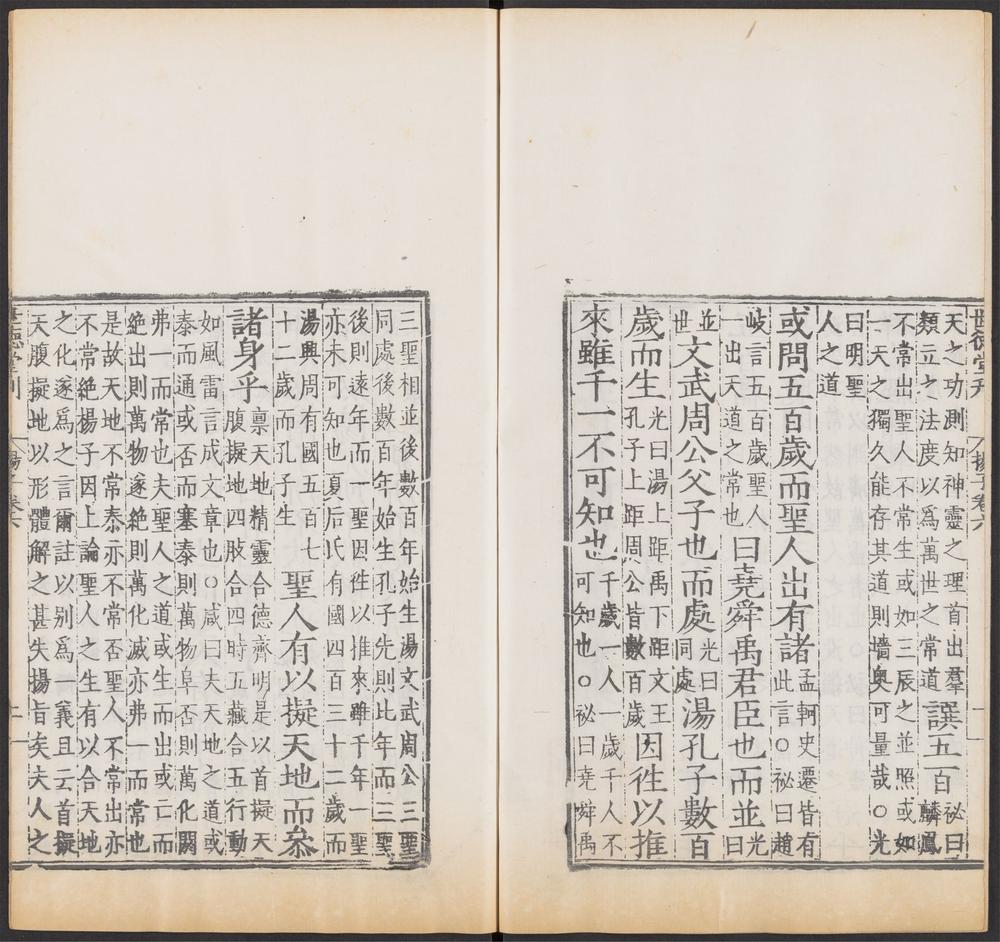 世德堂刊 揚子卷六 一
天之功測知神靈之理首出羣
類立之法度以爲萬世之常道
譔五百
祕曰
麟鳳
不常出聖人不常生或如三辰之並照或如
一天之獨久能存其道則墻奧可量哉○光
曰明聖
人之道
或問五百歲而聖人出有諸
孟軻史遷皆有
此言○祕曰趙
岐言五百歲聖人
一出天道之常也
曰堯舜禹君臣也而並
光
曰
並
世
文武周公父子也而處
光曰
同處
湯孔子數百
歲而生
光曰湯上距禹下距文王
孔子上距周公皆數百歲
因徃以推
來雖千一不可知也
千歲一人一歲千人不
可知也○祕曰堯舜禹
三聖相並後數百年始生湯文武周公三聖
同處後數百年始生孔子先則比年而三聖
後則遠年而一聖因徃以推來雖千年一聖
亦未可知也夏后氏有國四百三十二歲而
湯興周有國五百七
十二歲而孔子生
聖人有以擬天地而叅
諸身乎
稟天地精靈合德齊明是以首擬天
腹擬地四肢合四時五藏合五行動
如風雷言成文章也○咸曰夫天地之道或
泰而通或否而塞泰則萬物阜否則萬化閼
弗一而常也夫聖人之道或生而出或亡而
絶出則萬物遂絶則萬化滅亦弗一而常也
是故天地不常泰亦不常否聖人不常出亦
不常絶楊子因上論聖人之生有以合天地
之化遂爲之言爾註以别爲一義且云首擬
天腹擬地以形體解之甚失揚旨矣夫人之
世德堂刊 揚子卷六